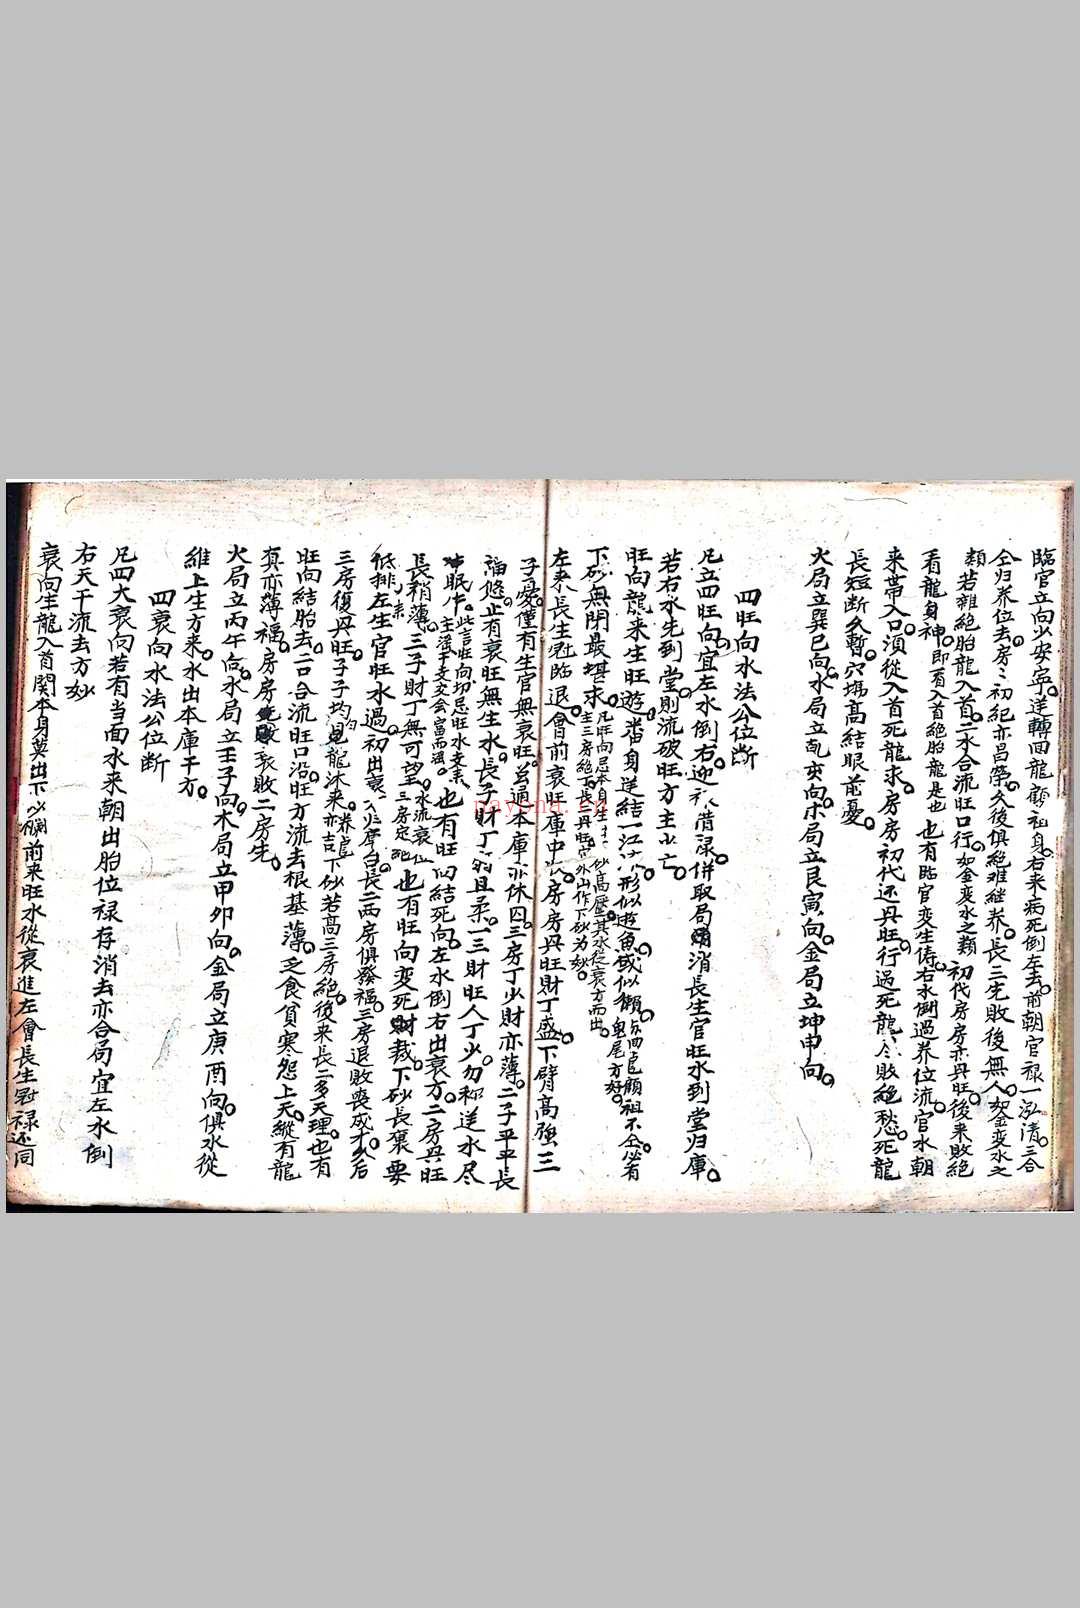 臨官立向必安寧。逆轉回龍顧祖身。右來病死倒左去。前朝官禄一泓清。三合
全归养位去。房〻初紀亦昌榮。久後俱絕难継养。長三先敗後無人。如金变水之
類若雜絕胎龍入首。二水合流旺口行。如金变水之類初代房房亦丹旺。後来敗絕
看龍身神。即看入首絕胎龍是也也有臨官变生倚。右水倒過养位流。官水朝
来带入口。須從入首死龍求。房房初代还丹旺。行過死龍人敗絕愁。死龍
長短断久暫。穴塲高結眼前憂。
火局立巽巳向。水局立乾亥向。木局立艮寅向。金局立坤申向。
四旺向水法公位断
凡立四旺向。宜左水倒右。迎禄借禄。併取局消長生官旺水到堂归庫。
若右水先到堂。則流破旺方主少亡。
旺向龍来生旺遊。番身逆結一江。形似遊魚或似獺。回尾顧祖不全。必有魚尾方好。
下砂無閉最堪求。凡旺向忌本身生下砂高壓其水從衰方而出。主三房絕丁長二丹旺。宜外山作下砂为妙。
左来長生冠臨退。會前衰旺庫中。長房房丹旺財丁盛。下臂高強三
子憂。僅有生官無衰旺。若通本庫亦休囚。三房丁少財亦薄。二子平平長
福悠。止有衰旺無生水。長子財丁弱且柔。二三財旺人丁少。勿和送水尽
眠牛。此言旺向切忌旺水支来主滛于支交会富而滛。也有旺向結死向。左水倒右出衰方。二房丹旺
長稍薄。三子財丁無可望。水流衰位三房定絕也有旺向变死財裁。下砂長裹要
低排。左生官旺水過。初出衰方庫台。長二兩房俱發福。三房退敗丧成才。久后
三房復丹旺。子子均見龍沐来。亦吉下砂若高三房絕。後来長二多夭理。也有
旺向結胎去。二合流旺口沿。旺方流去根基薄。乏食貧寒怨上天。縱有龍
真亦薄福。房房衰敗二房先。
火局立丙午向。水局立壬子向。木局立甲卯向。金局立庚酉向。俱水從
維上生方来。水出本庫干方。
四衰向水法公位断
凡四大衰向若有当面水来朝出胎位禄存消去亦合局宜左水倒
右天干流去方妙
衰向生龍入首関本身莫出下少欄前来旺水從衰進左會長生冠禄还同